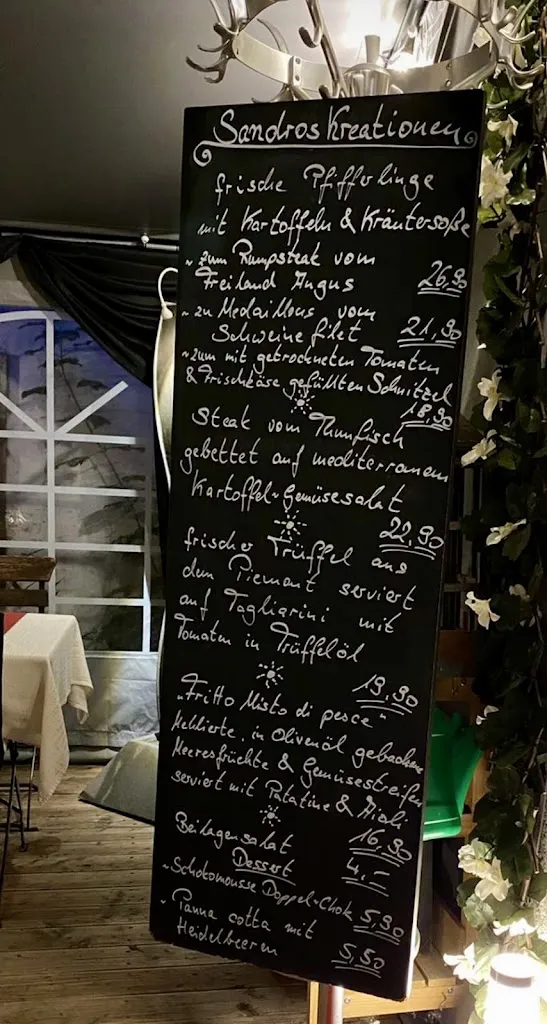 Sandros Kreationen
frische Pfifferlinge
mit Kartoffeln & Kräutersoße
~ zum Rumpsteak vom
Freiland Angus 26,90
~ zu Medaillons vom
Schweinefilet 21,90
~ zum mit getrockneten Tomaten
& Frischkäse gefüllten Schnitzel
18,90
Steak vom Thunfisch
gebettet auf mediterranem
Kartoffel-Gemüsesalat
22,90
frischer Trüffel aus
dem Piemont serviert
auf Tagliarini mit
Tomaten in Trüffelöl
19,90
"Fritto Misto di pesce"
Mehlierte, in Olivenöl gebackene
Meeresfrüchte & Gemüsestreifen
serviert mit Patatine & Aioli
16,90
Beilagensalat 4,-
Dessert
~ Schokomousse Doppel-Chok 5,90
~ Panna cotta mit
Heidelbeeren 5,50